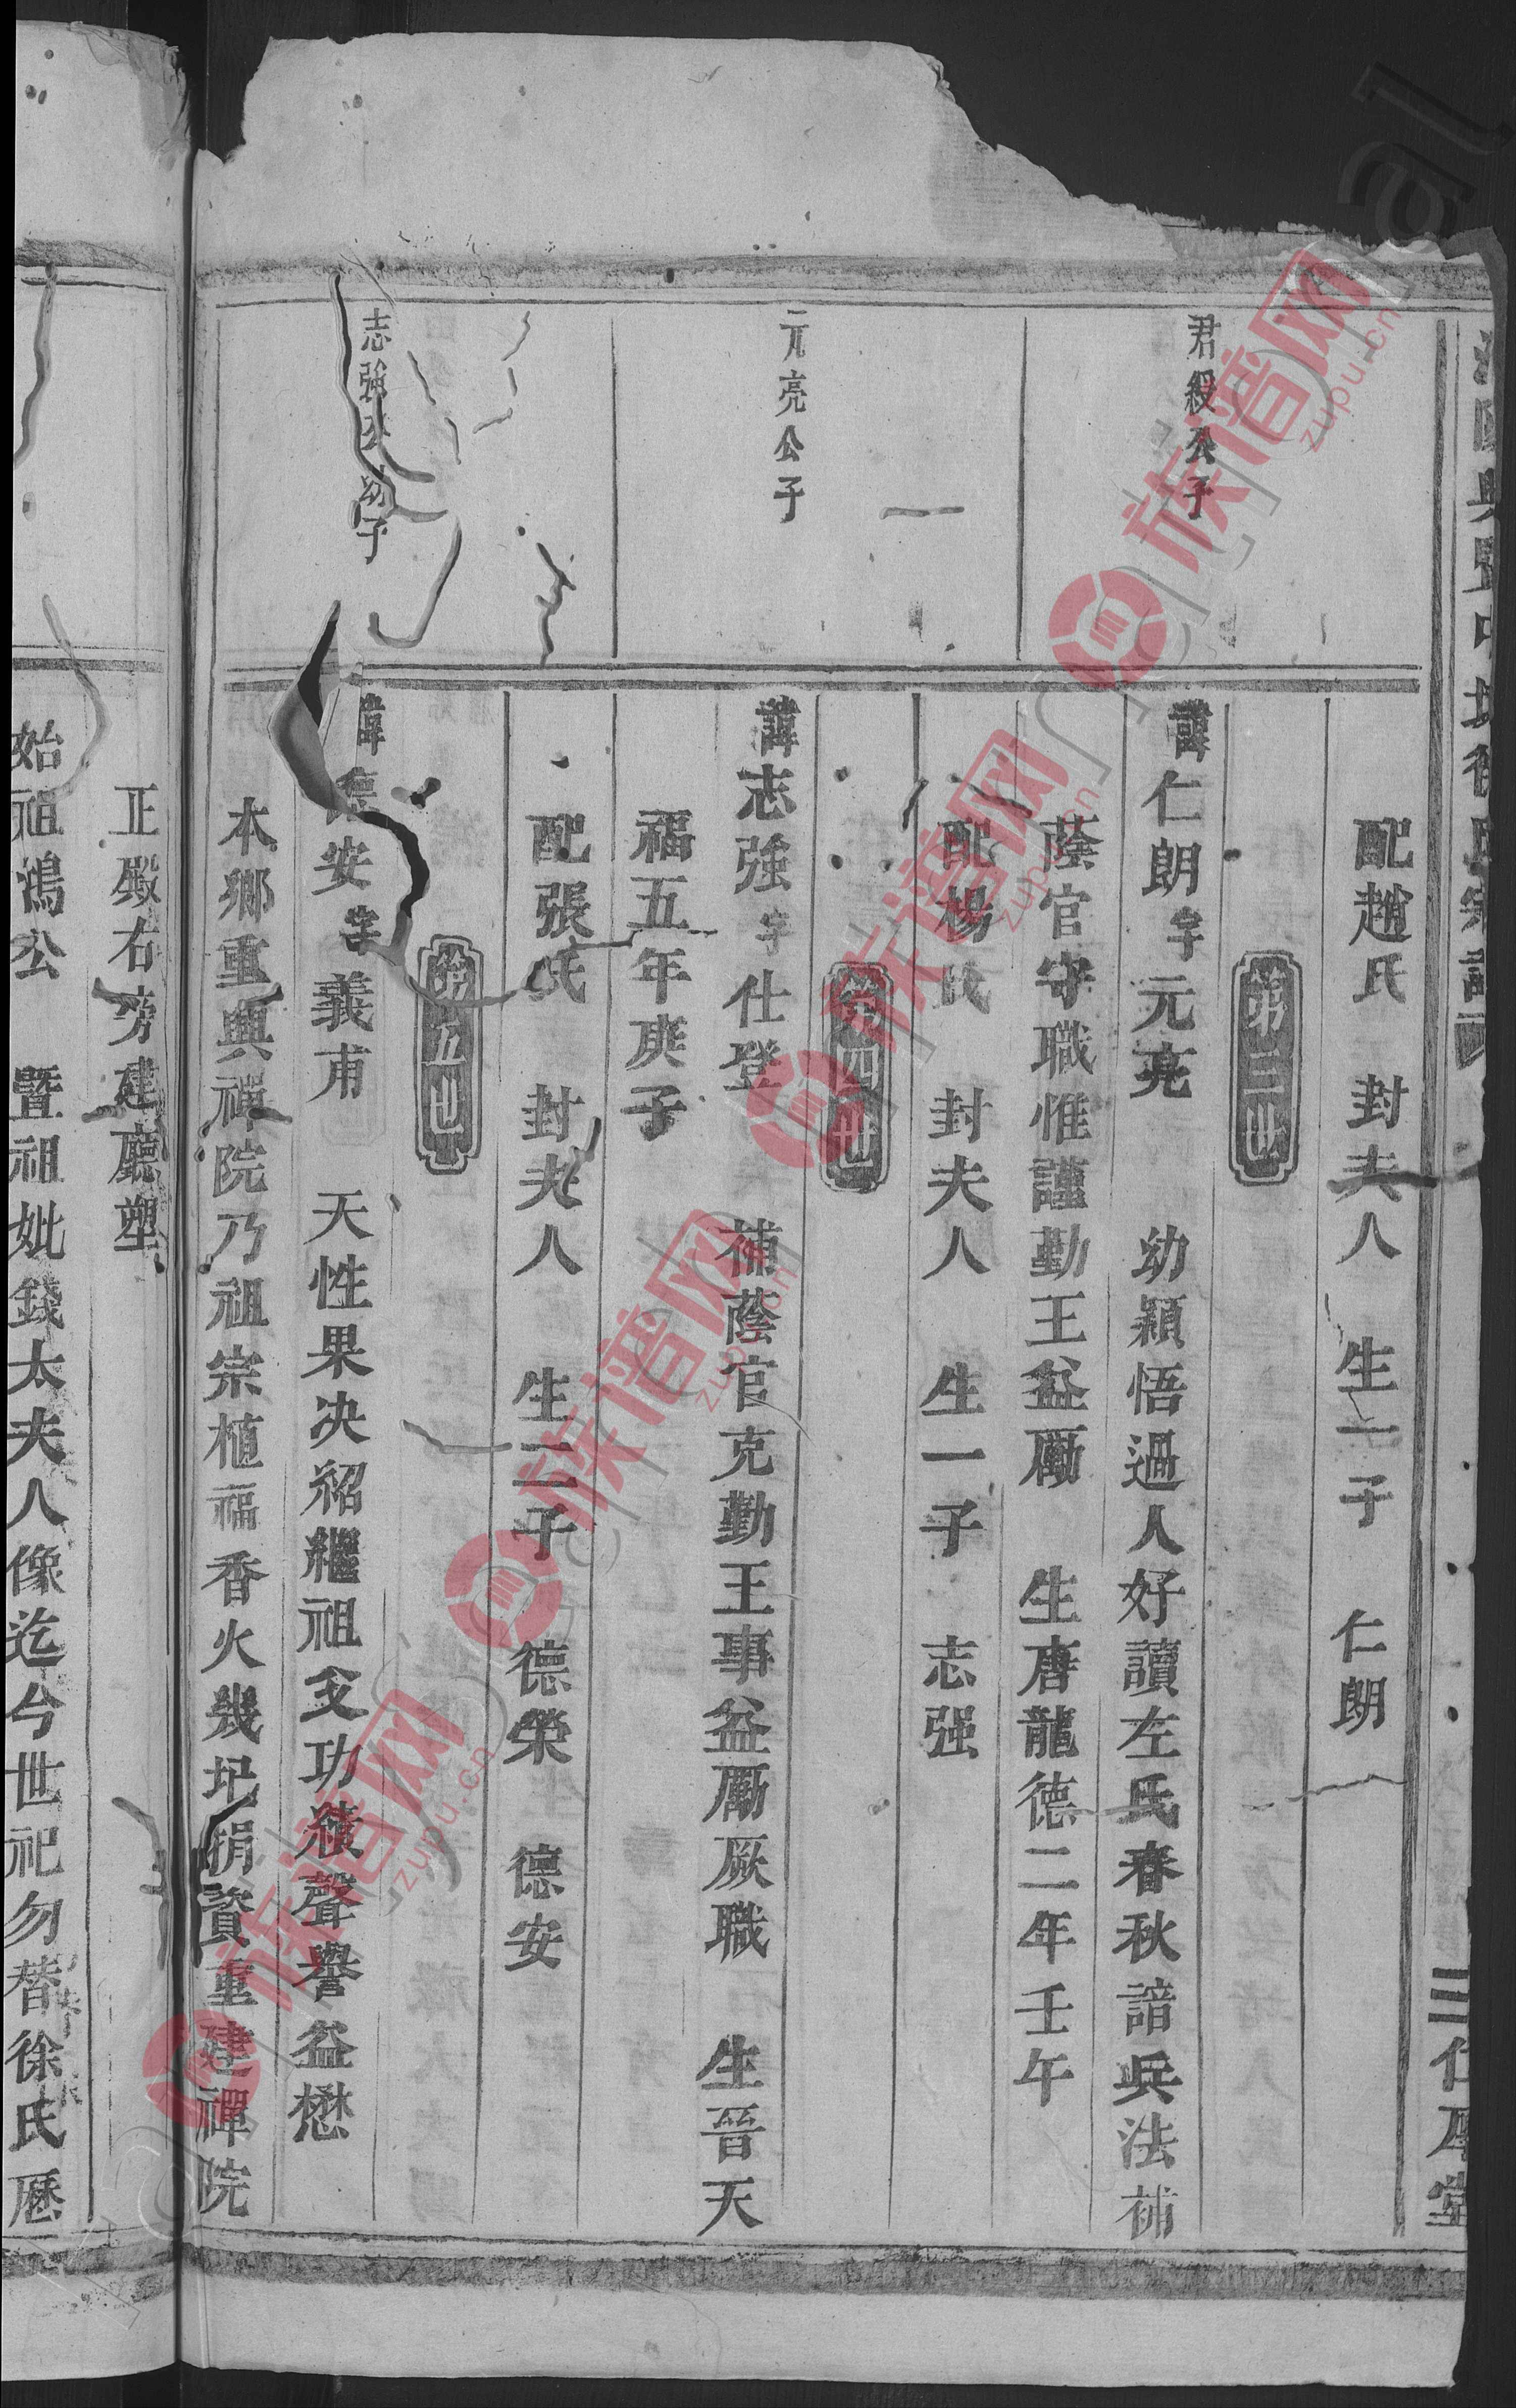 配趙氏 封夫人 生一子 仁朗
第三世
君綬公子
諱仁朗字元亮 幼穎悟過人好讀左氏春秋諳兵法補
蔭官守職惟謹勤王益勵 生唐龍德二年壬午
配楊氏 封夫人 生一子 志强
第四世
元亮公子
諱志強字仕登 補蔭官克勤王事益勵厥職 生晉天
福五年庚子
配張氏 封夫人 生二子 德榮 德安
第五世
志強公幼子
諱德安字義甫 天性果决紹繼祖父功績聲譽益懋
本鄉重興禪院乃祖宗植福香火幾圮捐資重建禪院
正殿右旁建廳塑
始祖鴻公 暨祖妣錢太夫人像迄今世祀勿替徐氏歷
族谱网
zupu.cn